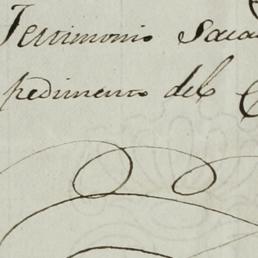 Testimonio Saca
pedimento del